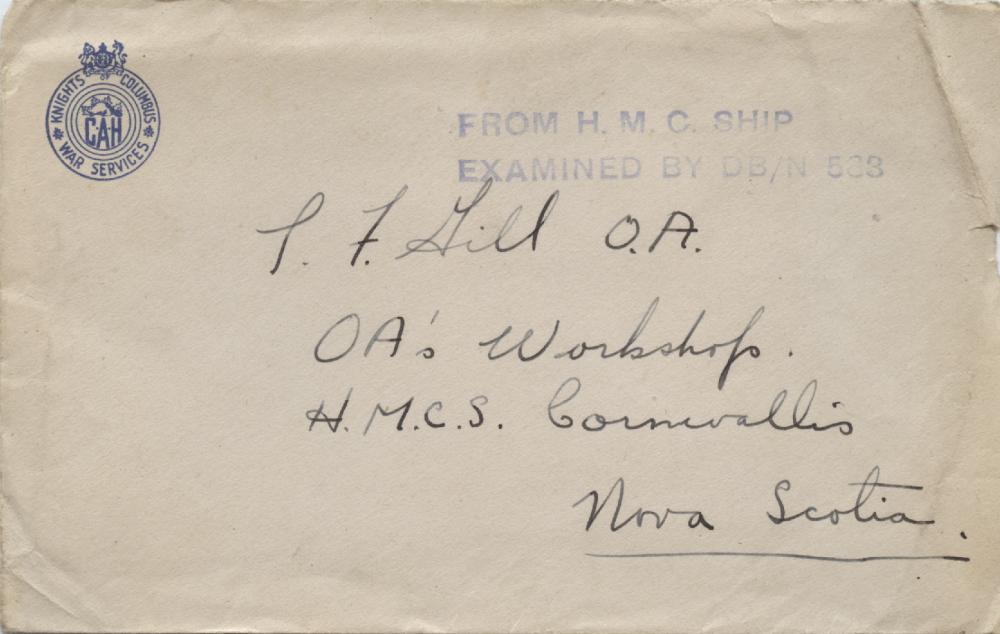 KNIGHTS COLUMBUS
CAH
WAR SERVICES
FROM H. M. C. SHIP
EXAMINED BY DB/N
F. Gill O.A.
OA's Workshop.
H.M.C.S. Cornwallis
Nova Scotia.